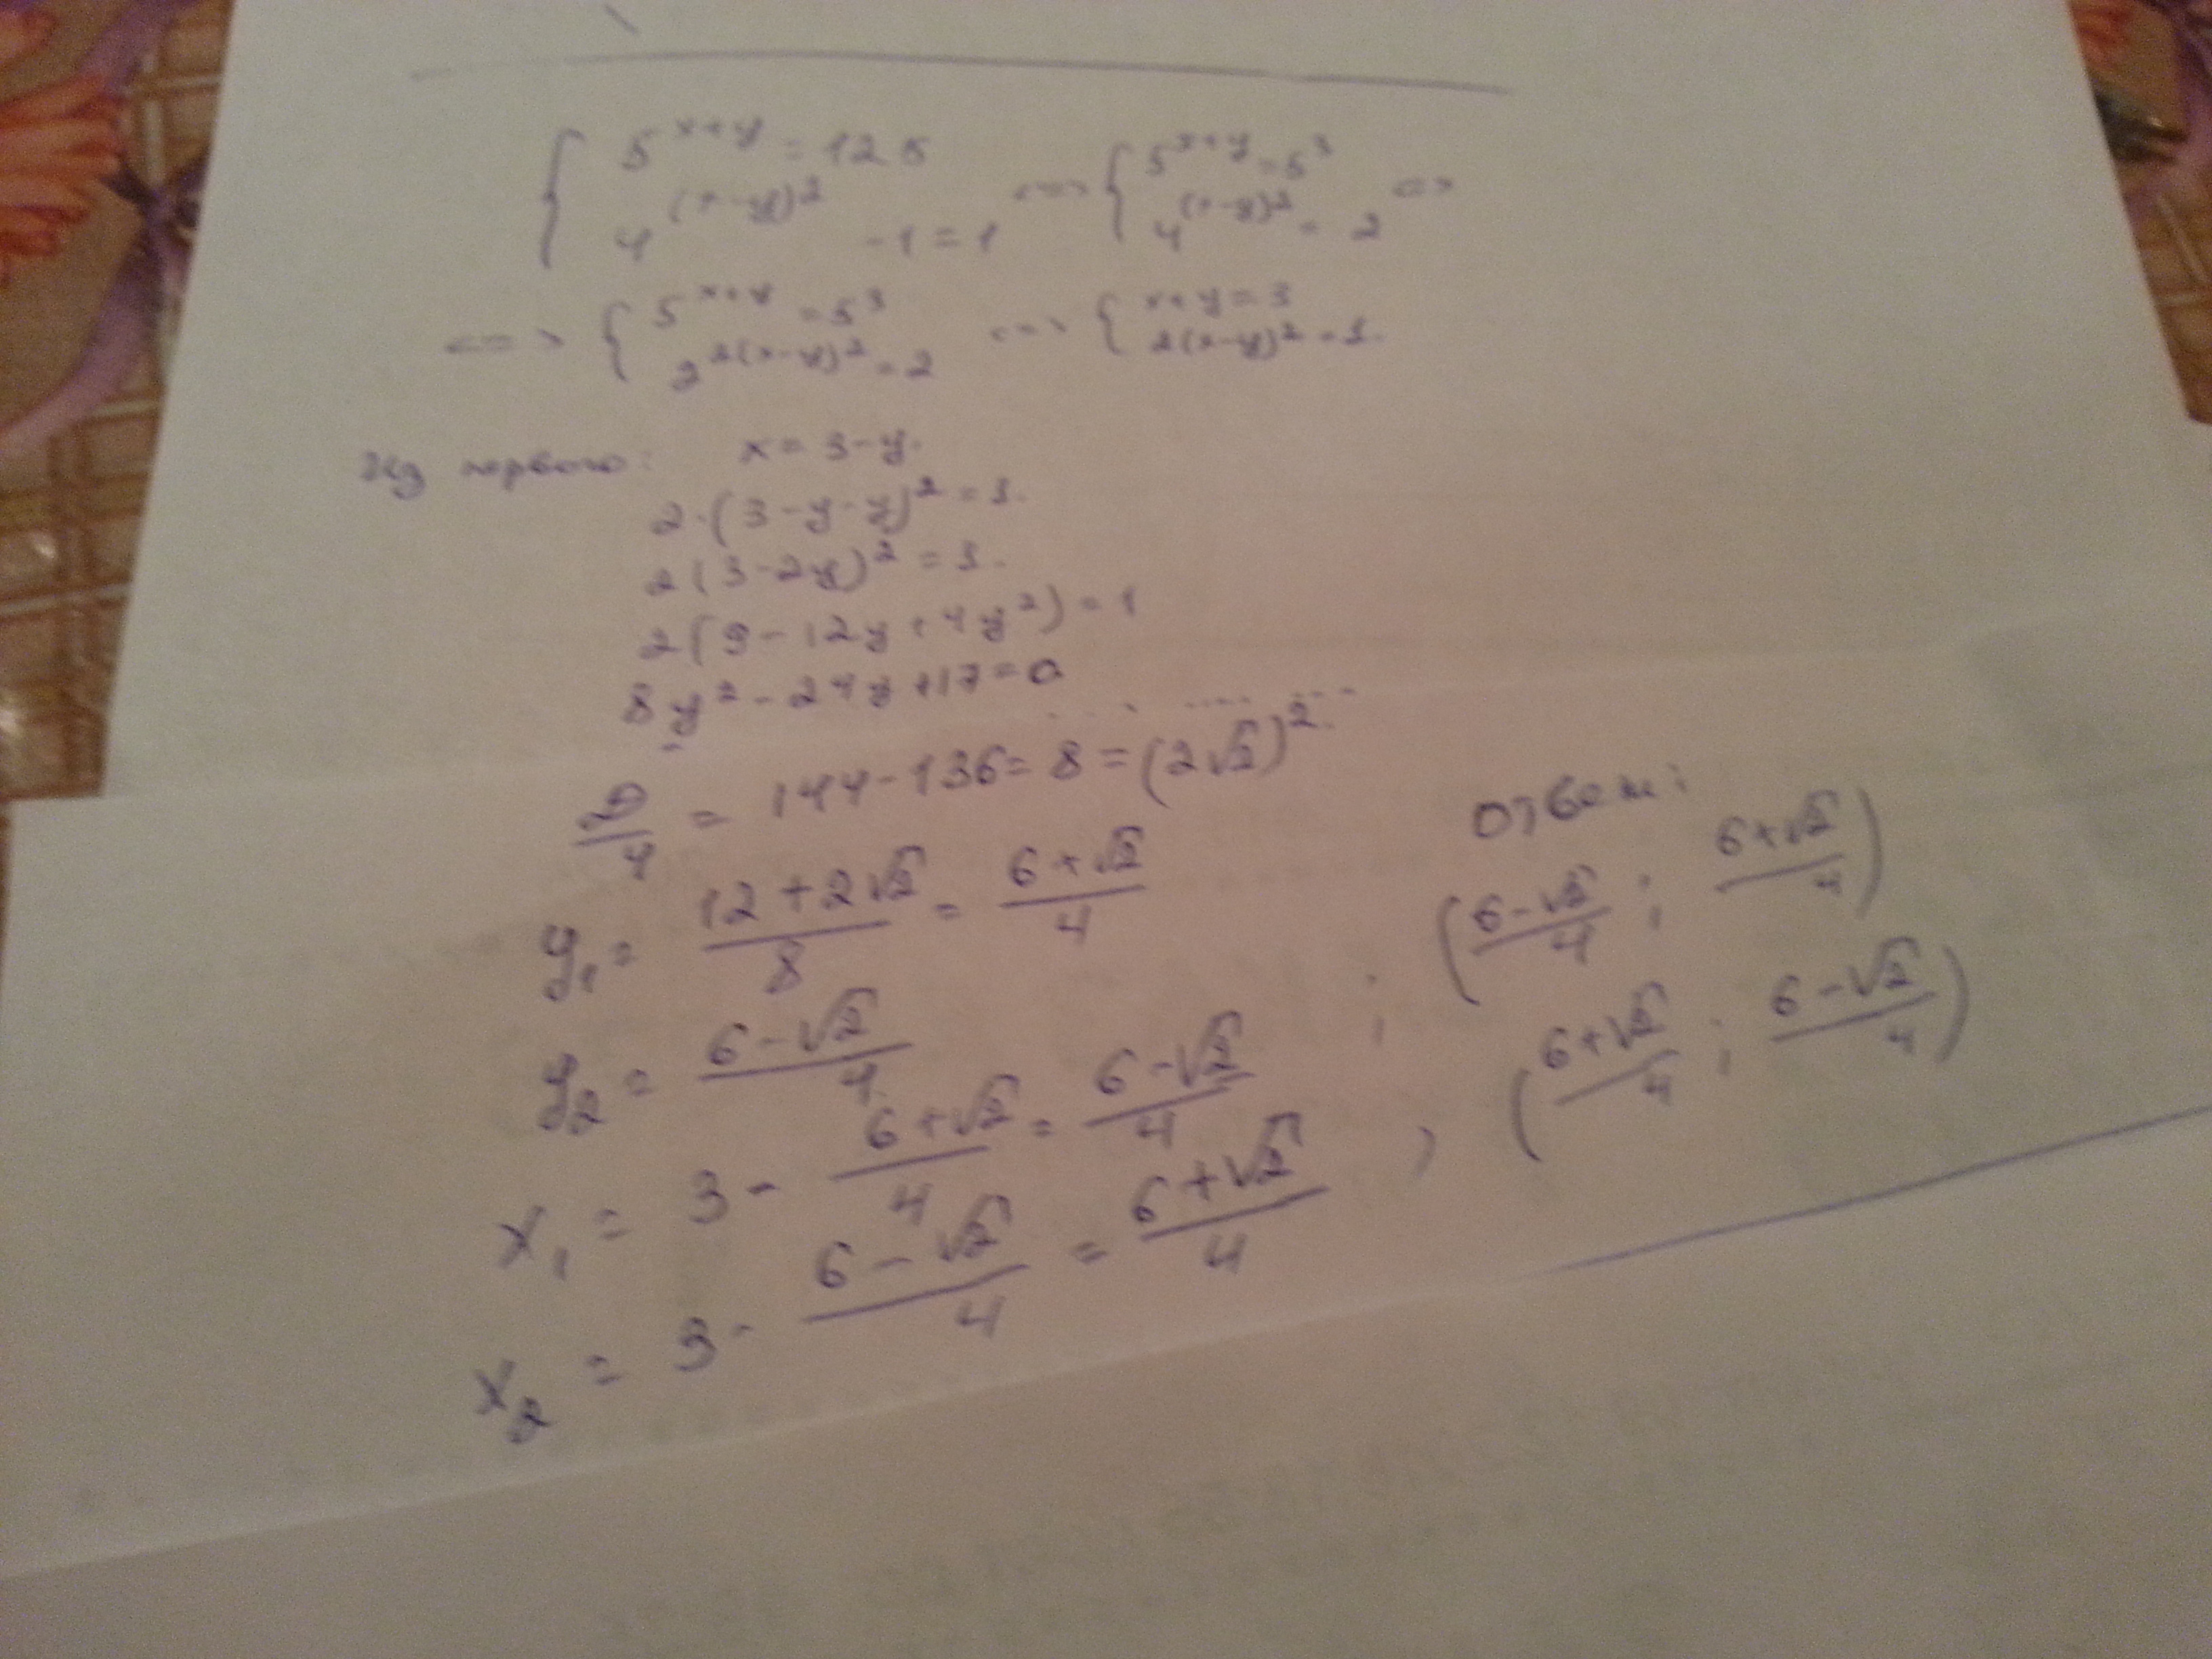 { 5^(x+y) = 125
4^((x-y)^2) - 1 = 1 <=> { 5^(x+y) = 5^3
4^((x-y)^2) = 2 <=>
<=> { 5^(x+y) = 5^3
2^(2(x-y)^2) = 2 <=> { x+y = 3
2(x-y)^2 = 1.
Из первого: x = 3-y.
2·(3-y-y)^2 = 1.
2(3-2y)^2 = 1.
2(9-12y+4y^2) = 1
8y^2 - 24y + 17 = 0
D/4 = 144 - 136 = 8 = (2√2)^2.
y₁ = (12+2√2)/8 = (6+√2)/4
y₂ = (6-√2)/4
x₁ = 3 - (6+√2)/4 = (6-√2)/4
x₂ = 3 - (6-√2)/4 = (6+√2)/4
Ответ:
((6-√2)/4 ; (6+√2)/4) ;
((6+√2)/4 ; (6-√2)/4)